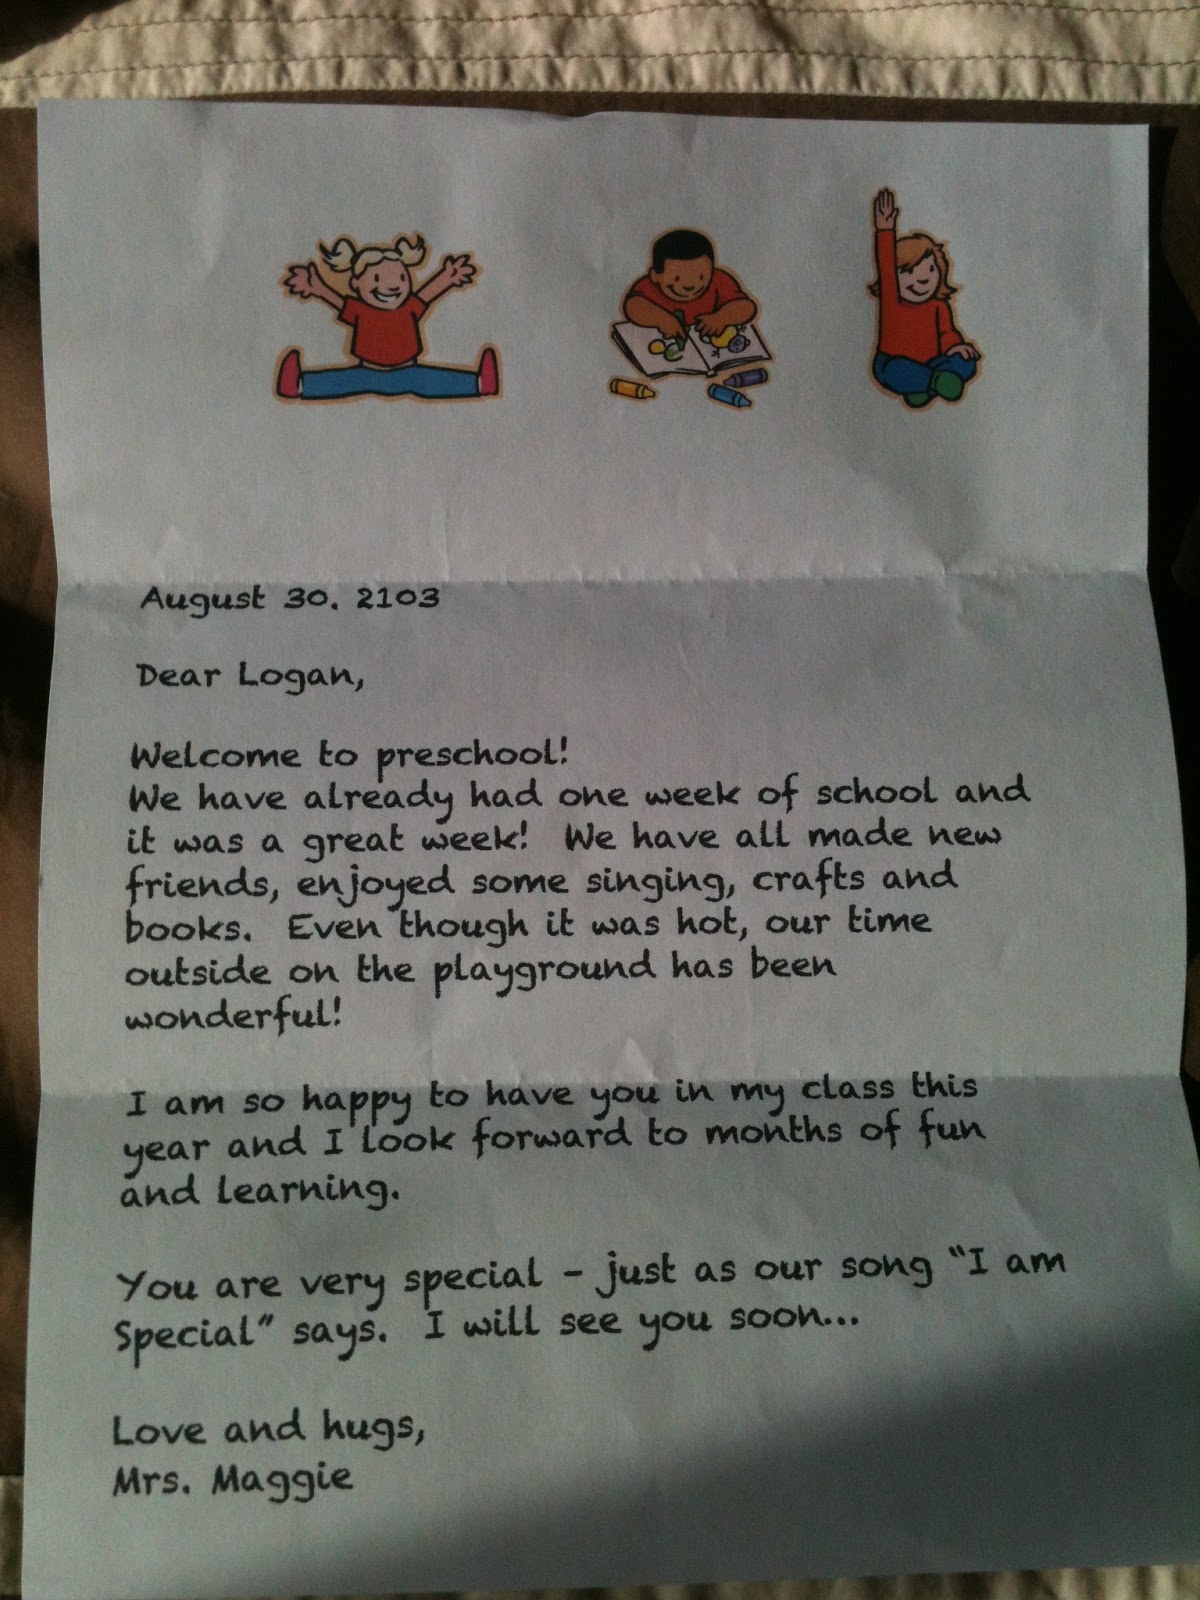 August 30. 2103
Dear Logan,
Welcome to preschool!
We have already had one week of school and
it was a great week!  We have all made new
friends, enjoyed some singing, crafts and
books.  Even though it was hot, our time
outside on the playground has been
wonderful!
I am so happy to have you in my class this
year and I look forward to months of fun
and learning.
You are very special - just as our song "I am
Special" says.  I will see you soon...
Love and hugs,
Mrs. Maggie